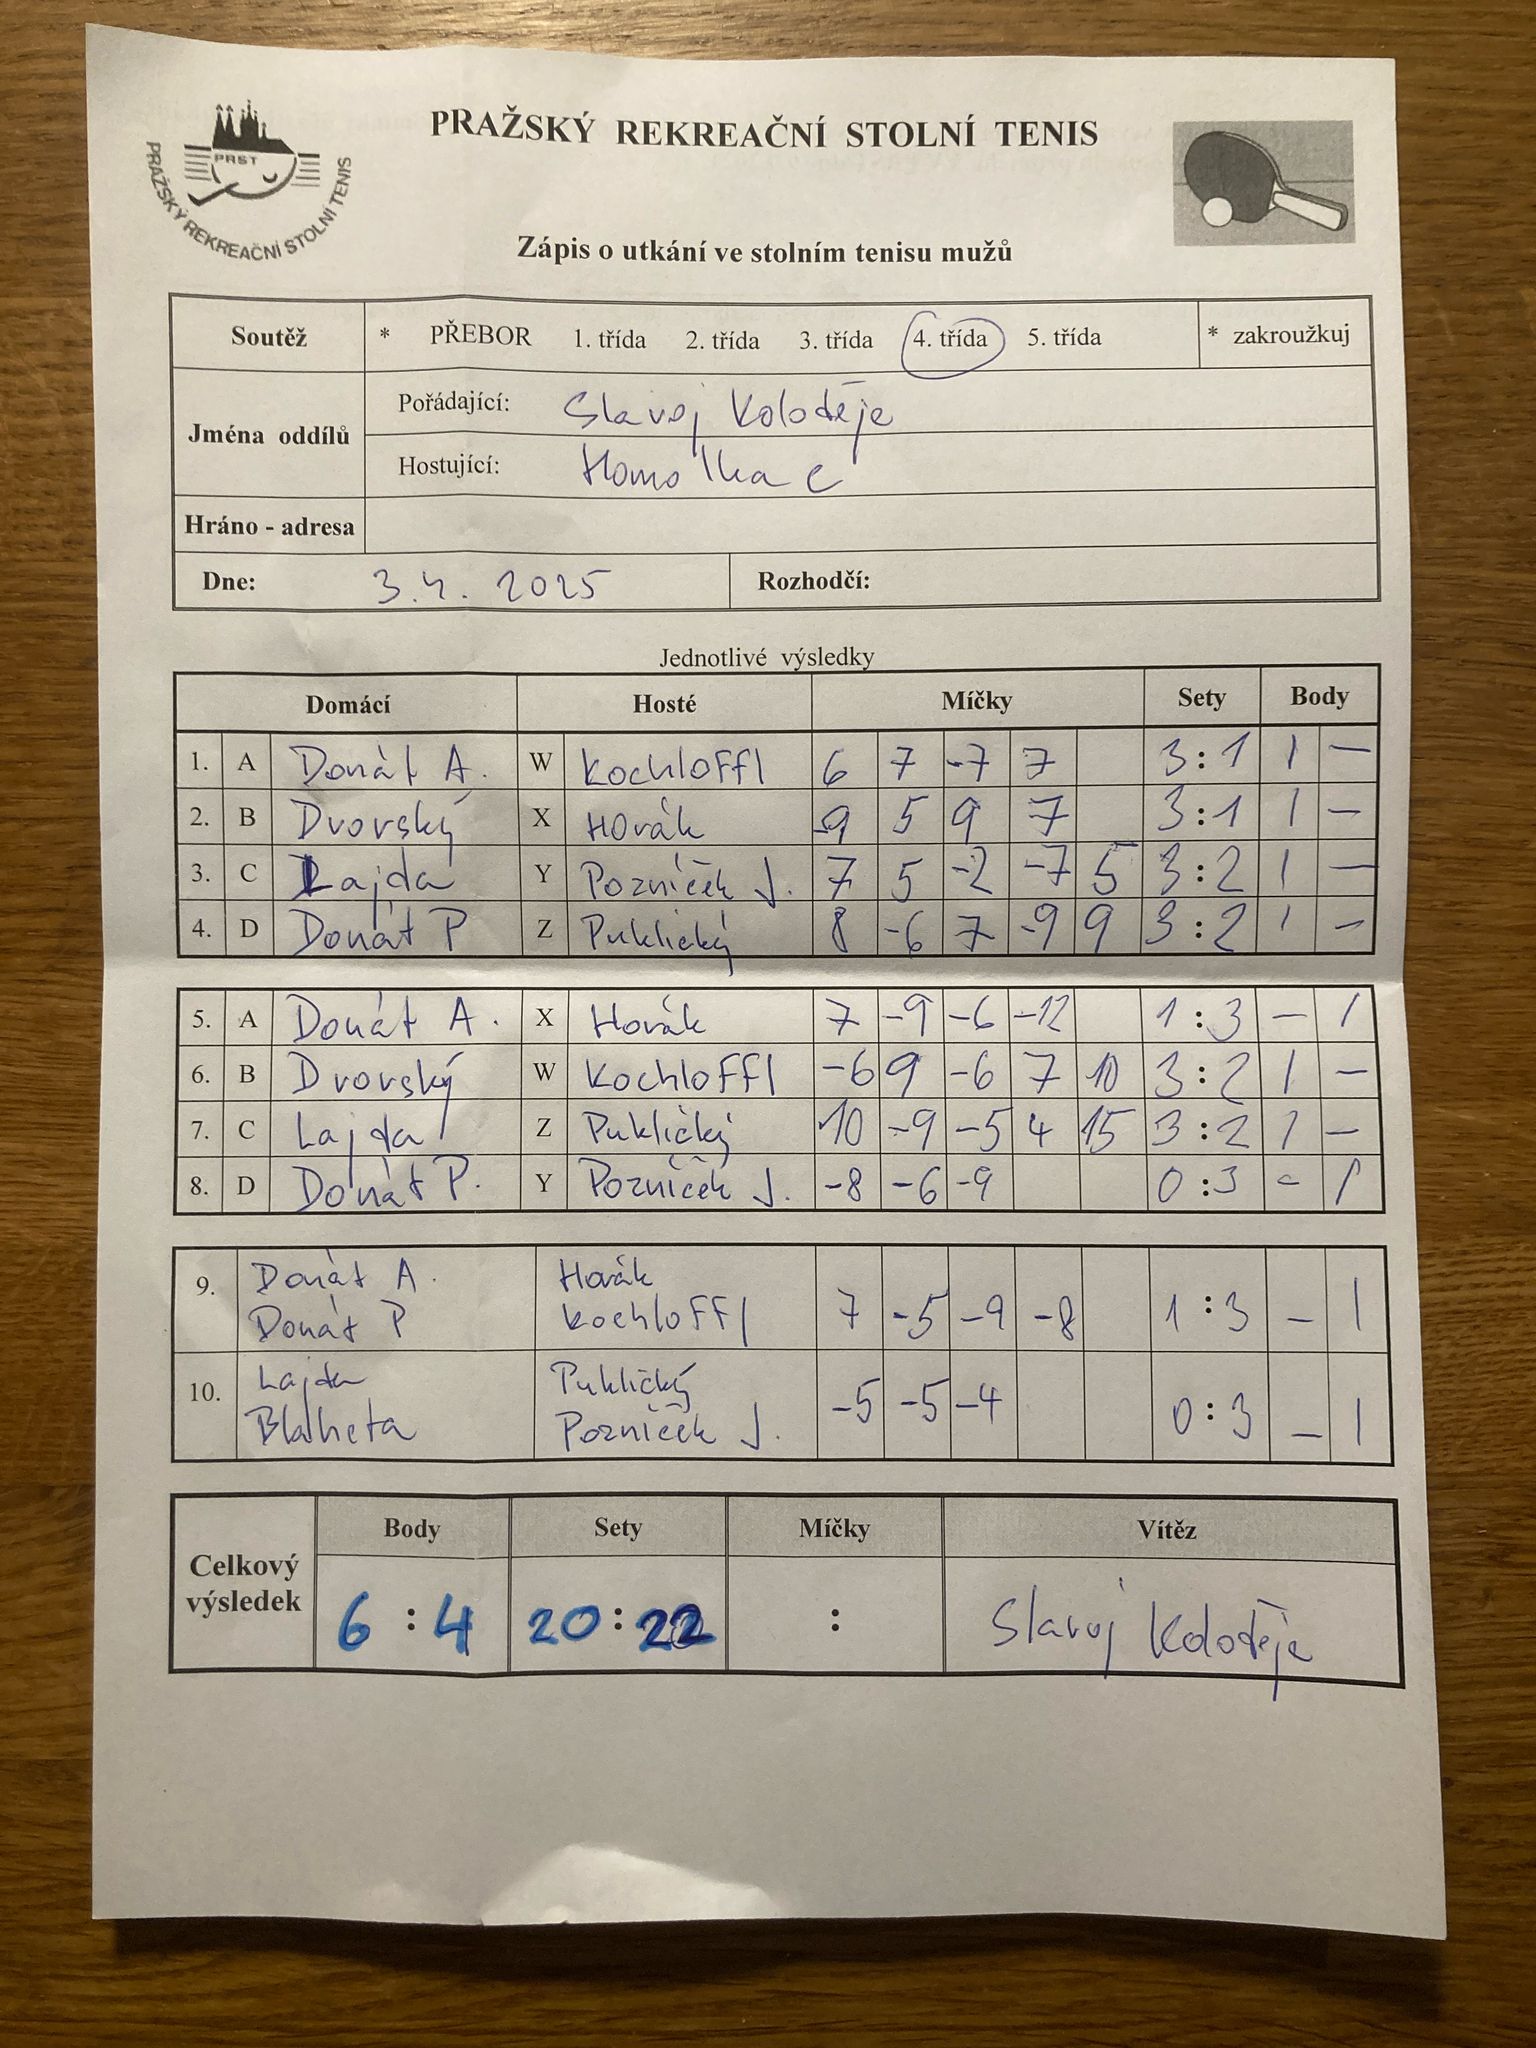 PRAŽSKÝ REKREAČNÍ STOLNÍ TENIS
PRST
PRAŽSKÝ REKREAČNÍ STOLNÍ TENIS
Zápis o utkání ve stolním tenisu mužů
Soutěž * PŘEBOR 1. třída 2. třída 3. třída 4. třída 5. třída * zakroužkuj
Jména oddílů
Pořádající: Slavoj Koloděje
Hostující: Homolka C
Hráno - adresa
Dne: 3.4. 2025 Rozhodčí:
Jednotlivé výsledky
Domácí Hosté Míčky Sety Body
1. A Donát A. W Kochloffl 6 7 -7 7 3:1 1 —
2. B Dvorský X Horák -9 5 9 7 3:1 1 —
3. C Lajda Y Pozníček J. 7 5 -2 -7 5 3:2 1 —
4. D Donát P Z Puklický 8 -6 7 -9 9 3:2 1 —
5. A Donát A. X Horák 7 -9 -6 -12 1:3 — 1
6. B Dvorský W Kochloffl -6 9 -6 7 10 3:2 1 —
7. C Lajda Z Puklický 10 -9 -5 4 15 3:2 1 —
8. D Donát P. Y Pozníček J. -8 -6 -9 0:3 — 1
9. Donát A. Horák
Donát P Kochloffl 7 -5 -9 -8 1:3 — 1
10. Lajda Puklický
Blaheta Pozníček J. -5 -5 -4 0:3 — 1
Celkový výsledek
Body Sety Míčky Vítěz
6:4 20:22 : Slavoj Koloděje